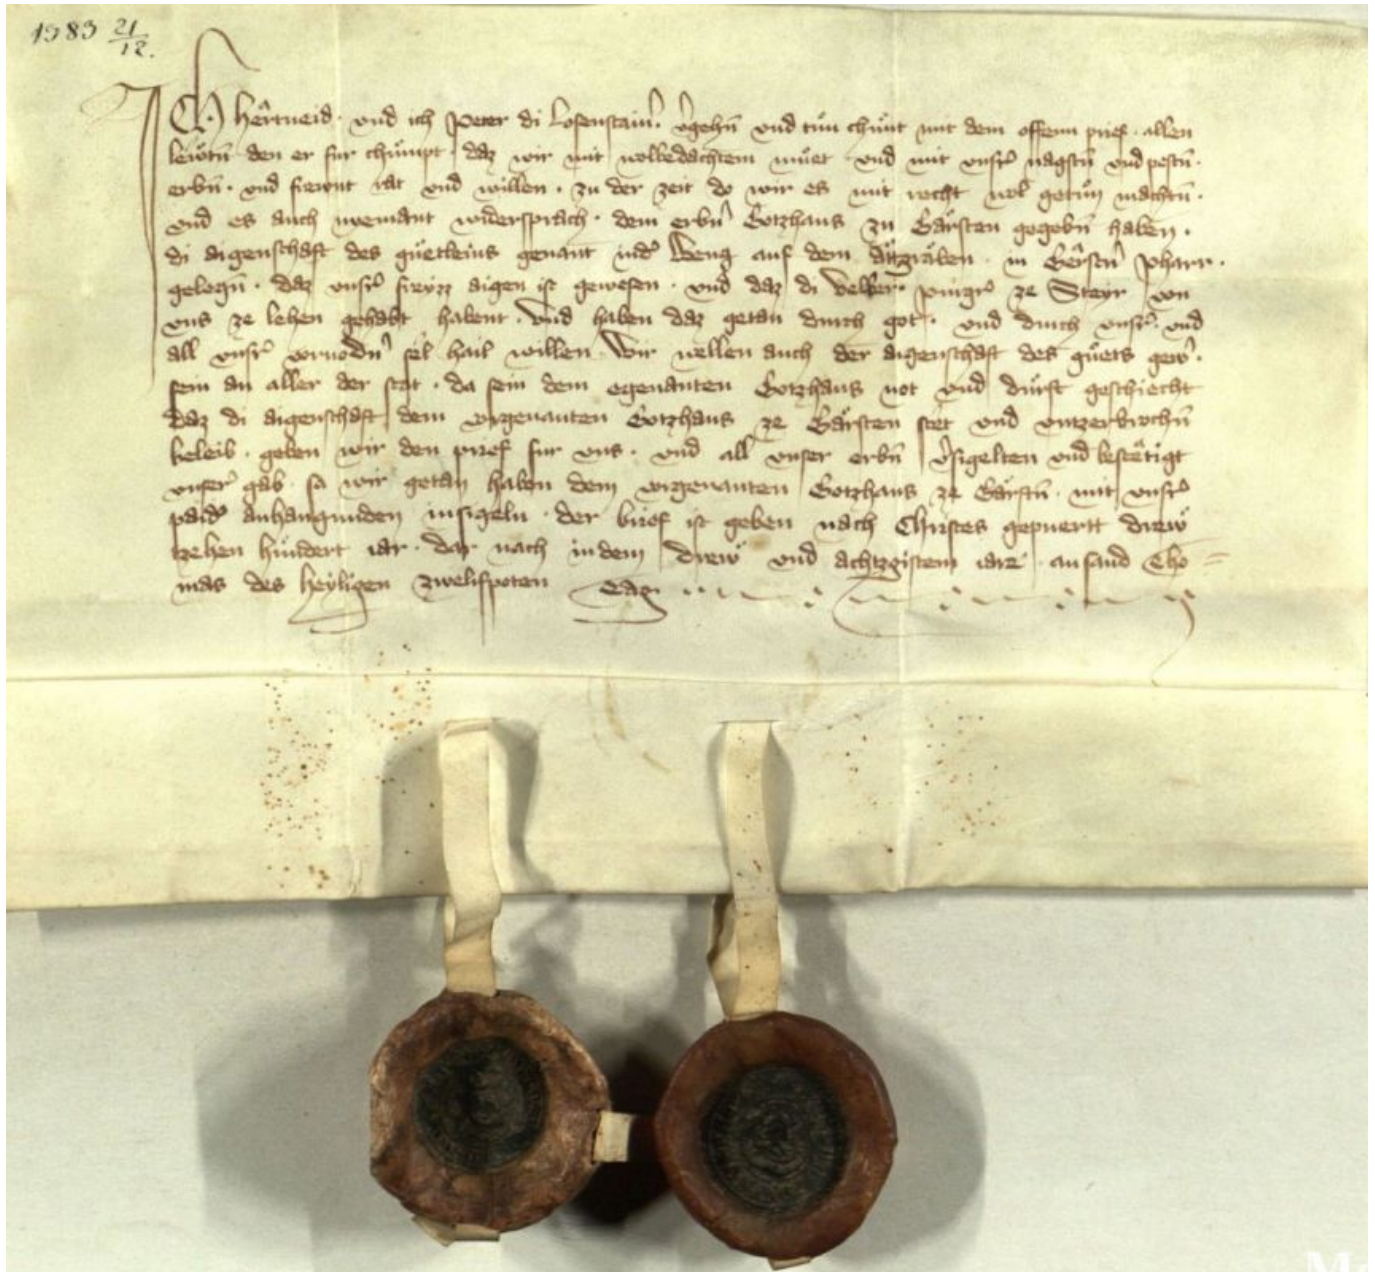 1383 21/12.
ICh Hertneid · und ich Peter di Losenstainer · v̓gehn̄ vnd tůn chůnt mit dem offenn prief · allen
lewtn̄ den er fur chůmpt · daz wir mit wolbedachtem můet · vnd mit vnsr̓ nagstn̄ vnd pestn̄ ·
erbn̄ · vnd frewnt rat vnd willen · zu der zeit do wir es mit recht wol getůn machtn̄ ·
vnd es auch niemant widersprach · dem erbn̓ Gotzhaus zu Gärsten gegebn̄ haben ·
di aigenschaft des gůetleins genant ind̓ Weng auf dem in Gärstn̓ Pharr ·
gelegn̄ · daz vnsr̓ freyzz aigen ist gewesen · vnd daz di purgr̓ ze Steyr von
vns ze lehen gehabt habent · Vnd haben daz getan durch got · vnd durch vnsr̓ · vnd
all vnsr̓ voruodn̓ sel hail willen · Wir wellen auch der aigenschaft des gůets gew̓ ·
sein an aller der stat · da sein dem egenanten Gotzhaus not vnd dürft geschiecht
daz di aigenschaft dem vorgenanten Gotzhaus ze Gärsten stet vnd vntzerbrochn̄
beleib · geben wir den prief fur vns · vnd all vnser erbn̄ v̓sigelten vnd bestëtigt
vnser̓ gab · so wir getan haben dem vorgenanten Gotzhaus ze Gärstn̄ · mit vnsr̓
paid̓ anhangunden insigeln · der brief ist geben nach Christes gepuertt drew
tzehen hündert iar · dar nach in dem drew vnd achtzgistem iare · an sand Tho =
mas des heyligen zwelifpoten Tag